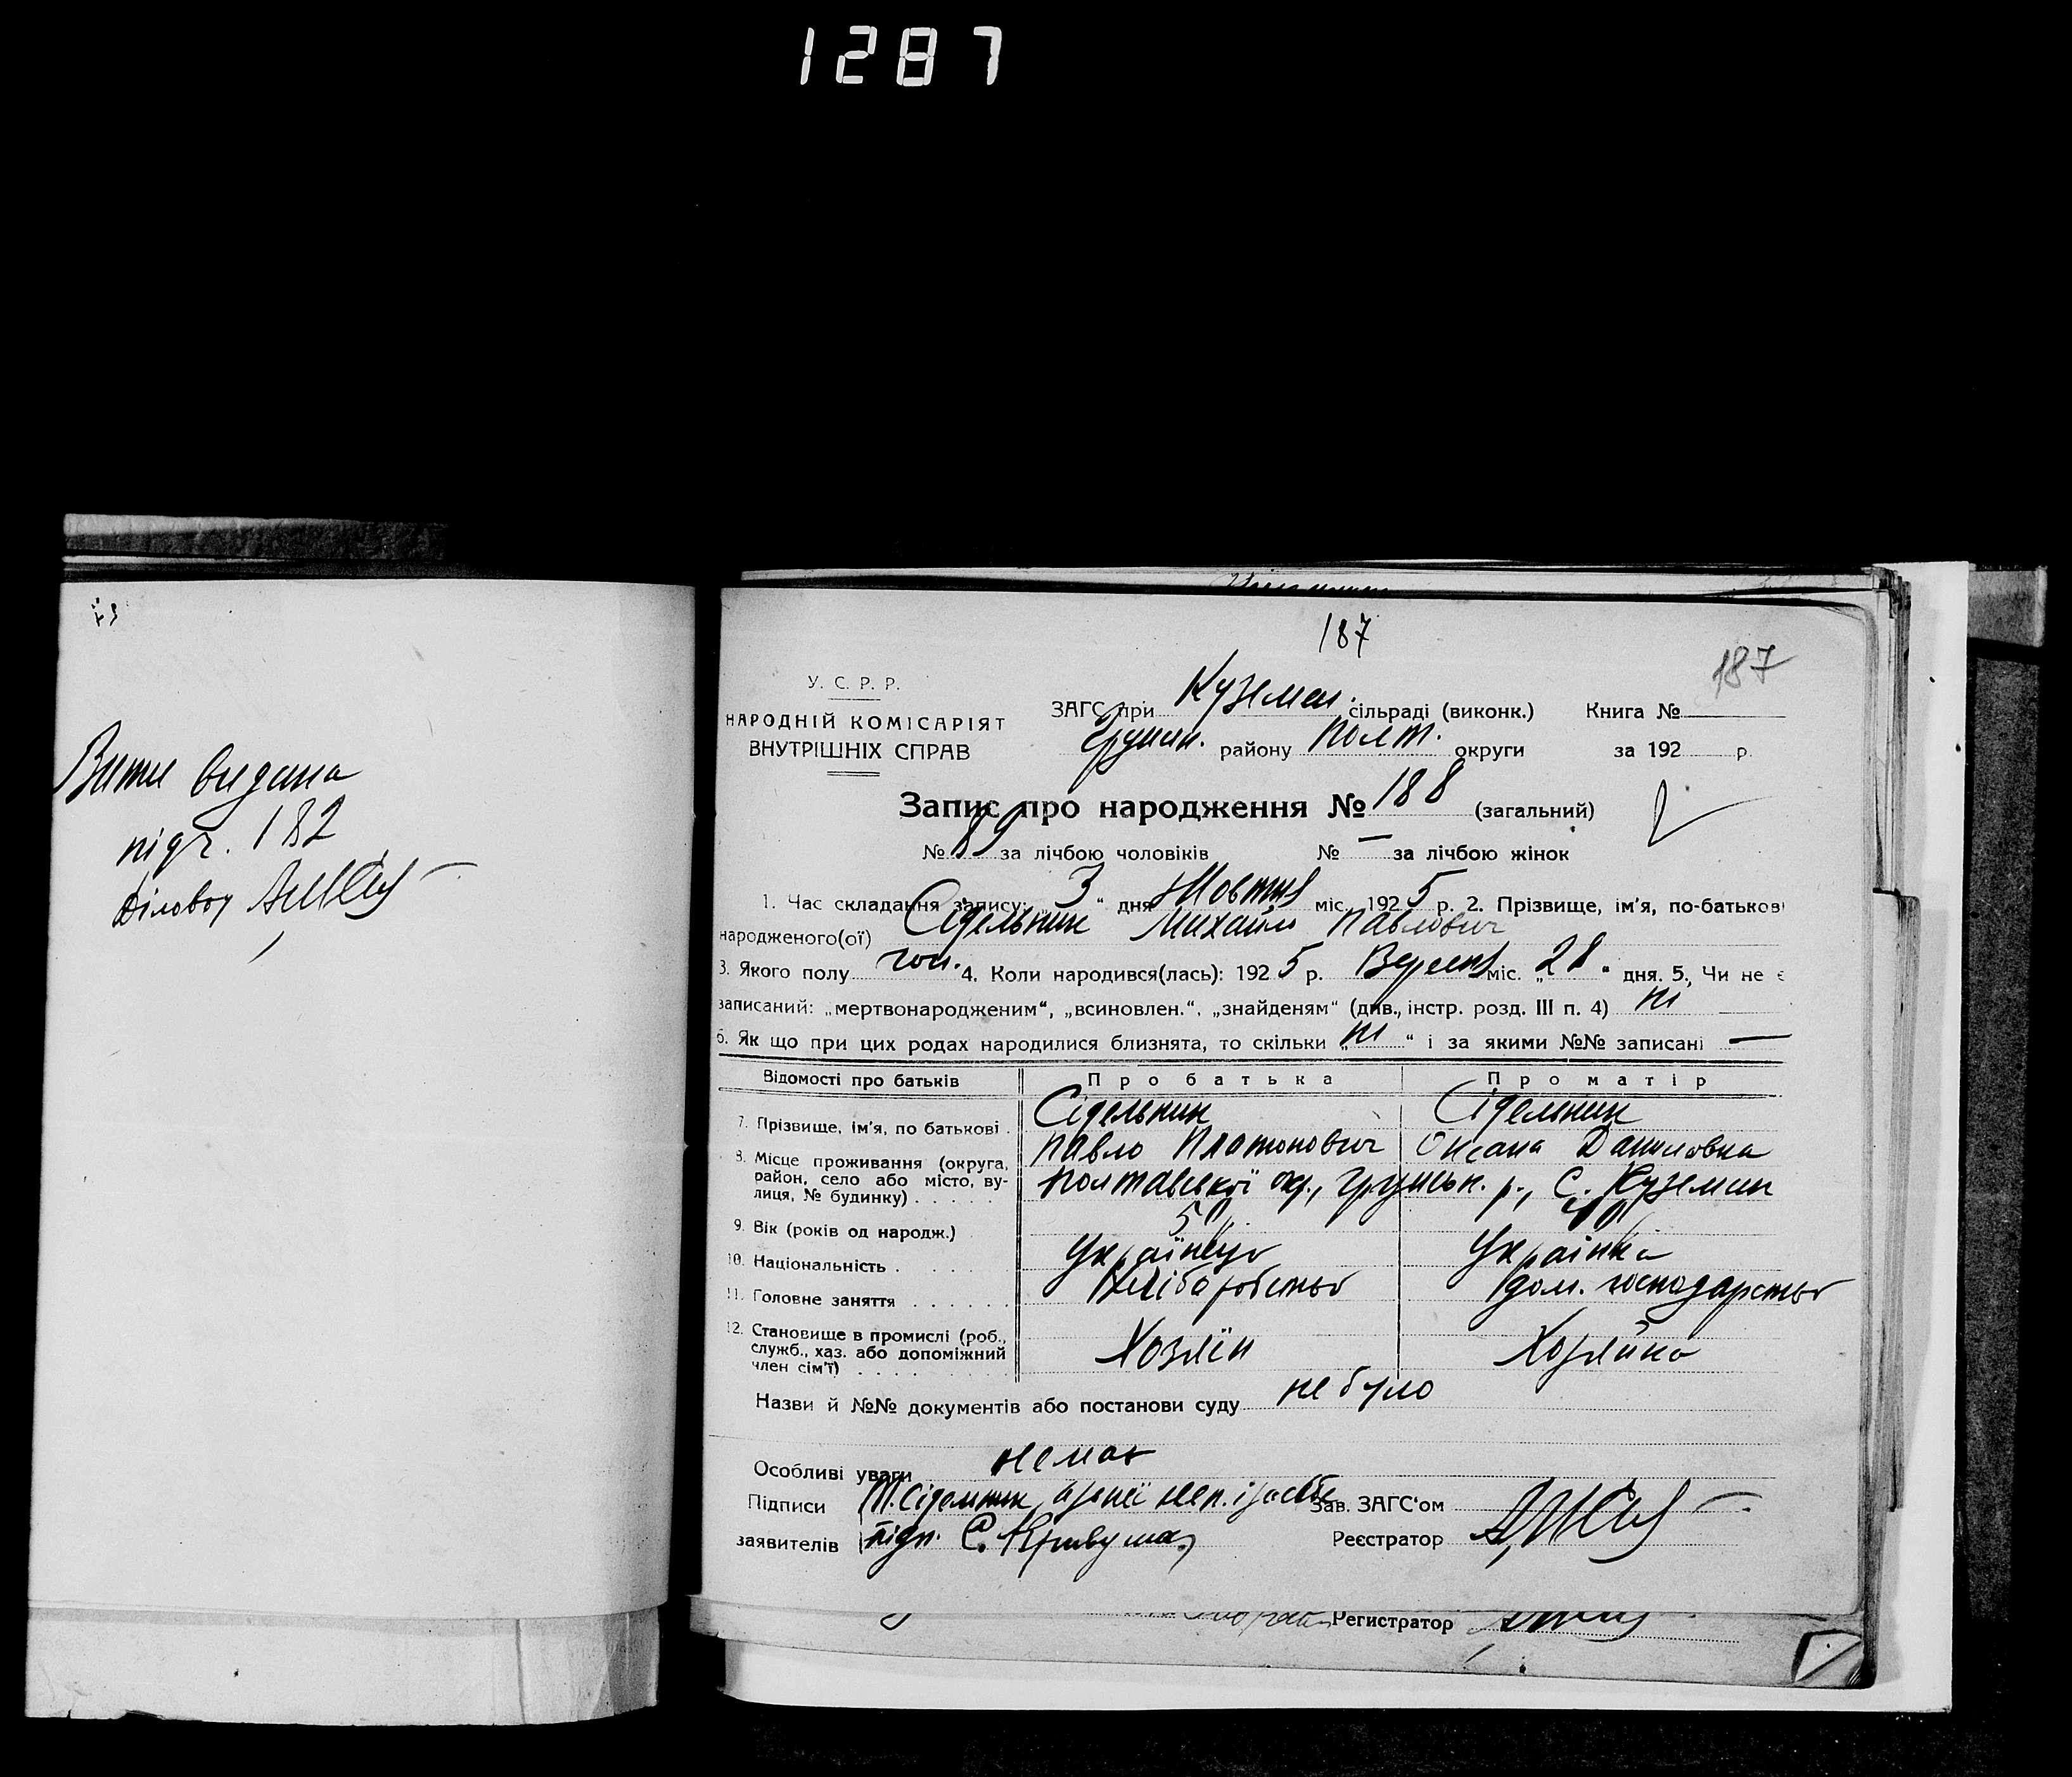 1287
Витяг видана
підч. 182
Діловод
187
187
У. С. Р. Р.
НАРОДНІЙ КОМІСАРІЯТ
ВНУТРІШНІХ СПРАВ
ЗАГС при Куземен. сільраді (виконк.) Книга №
Грунск. району Полт. округи за 192 р.
Запис про народження № 188 (загальний)
№ 89 за лічбою чоловіків № — за лічбою жінок
1. Час складання запису: 3 " дня Жовтня міс. 1925 р. 2. Прізвище, ім'я, по-батькові
народженого(ої) Сідельник Михайло Павлович
3. Якого полу чол. 4. Коли народився(лась): 1925 р. Вересня міс. „28 " дня. 5. Чи не є
записаний: „мертвонародженим“, „всиновлен.“, „знайденям“ (див., інстр. розд. III п. 4) ні
6. Як що при цих родах народилися близнята, то скільки „ні“ і за якими №№ записані —
Відомості про батьків Про батька Про матір
7. Прізвище, ім'я, по батькові . Сідельник Сідельник
Павло Платонович Оксана Даниловна
8. Місце проживання (округа, район, село або місто, вулиця, № будинку) . . . . . Полтавської окр., Груньськ. р., С. Куземин
9. Вік (років од народж.)
10. Національність . . . . . Українець Українка
11. Головне заняття . . . . . . Хліборобство дом. господарство
12. Становище в промислі (роб., служб., хаз. або допоміжний член сім'ї) . . . . . . . . Хозяїн Хозяйка
Назви й №№ документів або постанови суду не було
Особливі уваги немає
Підписи Сідельник, Зав. ЗАГС'ом
заявителів підп. С. Реєстратор
Регистратор